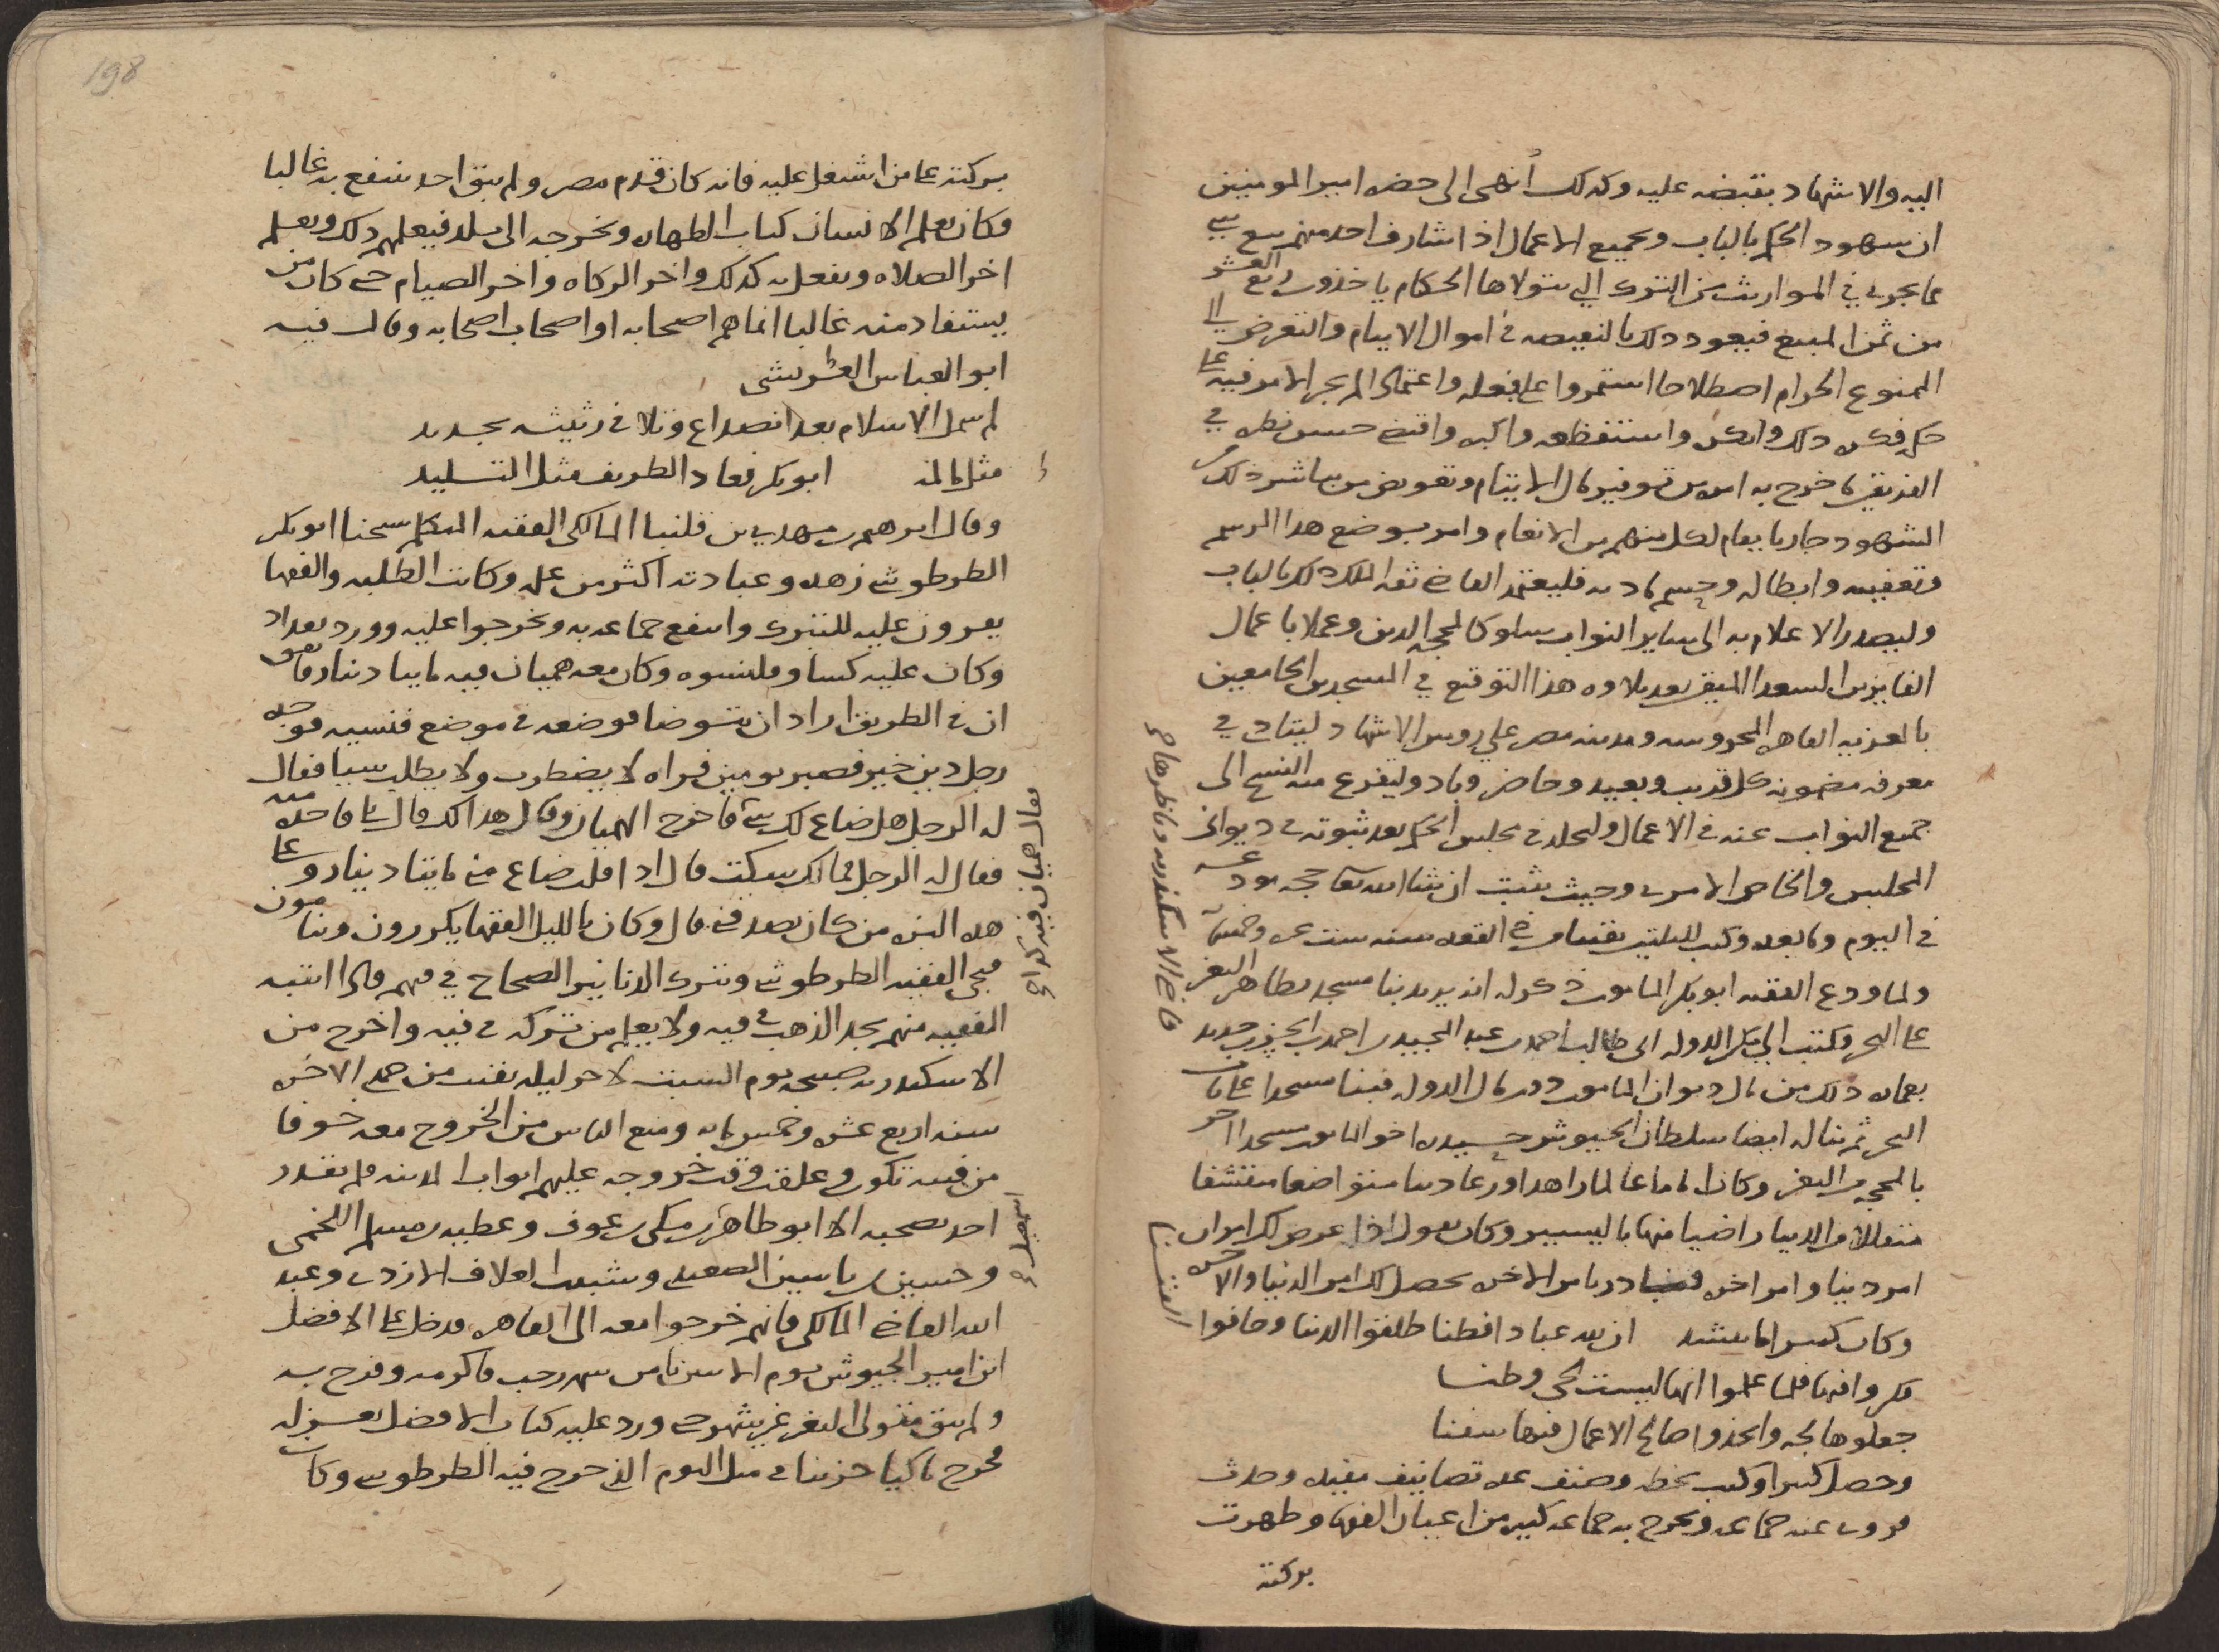 اليه والاشهاد بقبضه عليه وكدلك أنهى الى حضره امير المومنين
ان سهود الحكم بالباب وبجميع الاعمال اذا شارف احد منهم بيع شي
مما يجري في المواريث من الترك التي يتولاها الحكام ياخذون ربع العشر
من ثمن المبيع فيعود ذلك بالنقيصه في اموال الايتام والتعرض الى
الممنوع الحرام اصطلاحا استمروا على فعله واعتمادا لم يجر الامر فيه على
حكم فكره ذلك وانكره واستفظعه واكبره واقتضى حسن نظره في
الفريقين ما خرج به امره من توفير مال الايتام وتعويض من يباشر ذلك من
الشهود جاريا يقام لكل منهم من الانعام وامر بوضع هذا الرسم
وتعفيته وابطاله وحسم مادته فليعتمد القاضي ثقه الملك ذلك بالباب
وليصدر الاعلام به الى ساير النواب سلوكا لمحجه الدين وعملا باعمال
الفايزين السعدا المتقين بعد تلاوه هذا التوقيع في المسجدين الجامعين
بالمعزيه القاهره المحروسه ومدينه مصر على روس الاشهاد ليتساوى في
معرفه مضمونه كل قريب وبعيد وحاضر وباد وليفرع منه النسخ الى
جميع النواب عنه في الاعمال وليخلد في مجلس الحكم بعد ثبوته في ديواني
المجلس والخاص الامري وحيث يثبت ان شا الله تعالى حجه مودعه
في اليوم وما بعده وكتب لليلتين بقيتا من ذي القعده سنه ست عشره وخمسمايه
ولما ودع الفقيه ابو بكر المامون ذكر له انه يريد بنا مسجد بظاهر الثغر
على البحر فكتب الى مكين الدوله ابي طالب احمد بن عبد المجيد بن احمد بن الحسن بن حديد
بعماره ذلك من مال ديوان المامون دون مال الدوله فبنا مسجدا على باب
البحر ثم بنا له ايضا سلطان الجيوش حيدره اخو المامون مسجدا اخر
بالمحجه من الثغر وكان اماما عالما زاهدا ورعا دينا متواضعا متقشفا
متقللا من الدنيا راضيا منها باليسير وكان يقول اذا عرض لك امران
امر دنيا وامر اخره فبادر بامر الاخره يحصل لك امر الدنيا والاخره
وكان كثيرا ما ينشد ان لله عبادا فطنا طلقوا الدنيا وخافوا الفتنا
فكروا فيها فلما علموا انها ليست لحي وطنا
جعلوها لجه واتخذوا صالح الاعمال فيها سفنا
وحصل كثيرا وكتب بخطه وصنف عده تصانيف مفيده وحدث
فروى عنه جماعه وتخرج به جماعه كثيره من اعيان الفقها وظهرت
بركته
قاضي الاسكندريه وناظرها
بركته على من اشتغل عليه فانه كان قدم مصر ولم يبق احد ينتفع به غالبا
فكان يعلم الانسان كتاب الطهاره ويخرجه الى بلد فيعلمهم ذلك ويعلم
اخر الصلاه ويفعل به كذلك واخر الزكاه واخر الصيام حتى كان من
يستفاد منه غالبا انما هم اصحابه او اصحاب اصحابه وقال فيه
ابو العباس
لم الاسلام بعد انصداع وتلا في رثيثه بجديد
مثل ابو بكر فعاد الطريف مثل التليد
وقال ابرهيم بن مهدي بن قلنبا المالكي الفقيه المتكلم شيخنا ابو بكر
الطرطوشي زهده وعبادته اكثر من علمه وكانت الطلبه والفقها
يقرون عليه للتبرك وانتفع جماعه به وتخرجوا عليه وورد بغداد
وكان عليه كسا وقلنسوه وكان معه هميان فيه مايتا دينار فاتفق
ان في الطريق اراد ان يتوضا فوضعه في موضع فنسيه فوجده
رجل دين خير فصبر يومين فراه لا يضطرب ولا يطلب شيا فقال
له الرجل هل ضاع لك شي فاخرج الهميان وقال هذا لك قال بلى فاخذه منه
فقال له الرجل فما لك سكت قال اذا قلت ضاع مني مايتا دينار وعلى
هذه البزه من كان يصدقني قال وكان بالليل الفقها يكررون وينامون
فيجي الفقيه الطرطوشي ويترك الدنانير الصحاح في فيهم فاذا انتبه
الفقيه منهم يجد الذهب في فيه ولا يعلم من تركه في فيه واخرج من
الاسكندريه صبيحه يوم السبت لاخر ليله بقيت من جمادى الاخره
سنه اربع عشره وخمسمايه ومنع الناس من الخروج معه خوفا
من فتنه تكون وغلقت وقت خروجه عليهم ابواب المدينه فلم يقدر
احد يصحبه الا ابو طاهر بن مكي بن عوف وعطيه بن مسلم اللخمي
وحسين بن ياسين الصعيدي وشبعان العلاف الازدي وعبد
الله القاضي المالكي فانهم خرجوا معه الى القاهره فدخل على الافضل
ابن امير الجيوش يوم الاثنين ثامن شهر رجب فاكرمه وفرح به
ولم يبق متولي الثغر غير شهر حتى ورد عليه كتاب الافضل بعزله
فخرج باكيا حزينا في مثل اليوم الذي خرج فيه الطرطوشي وكان
يقال هميان فيه كذا
اسمعيل
198